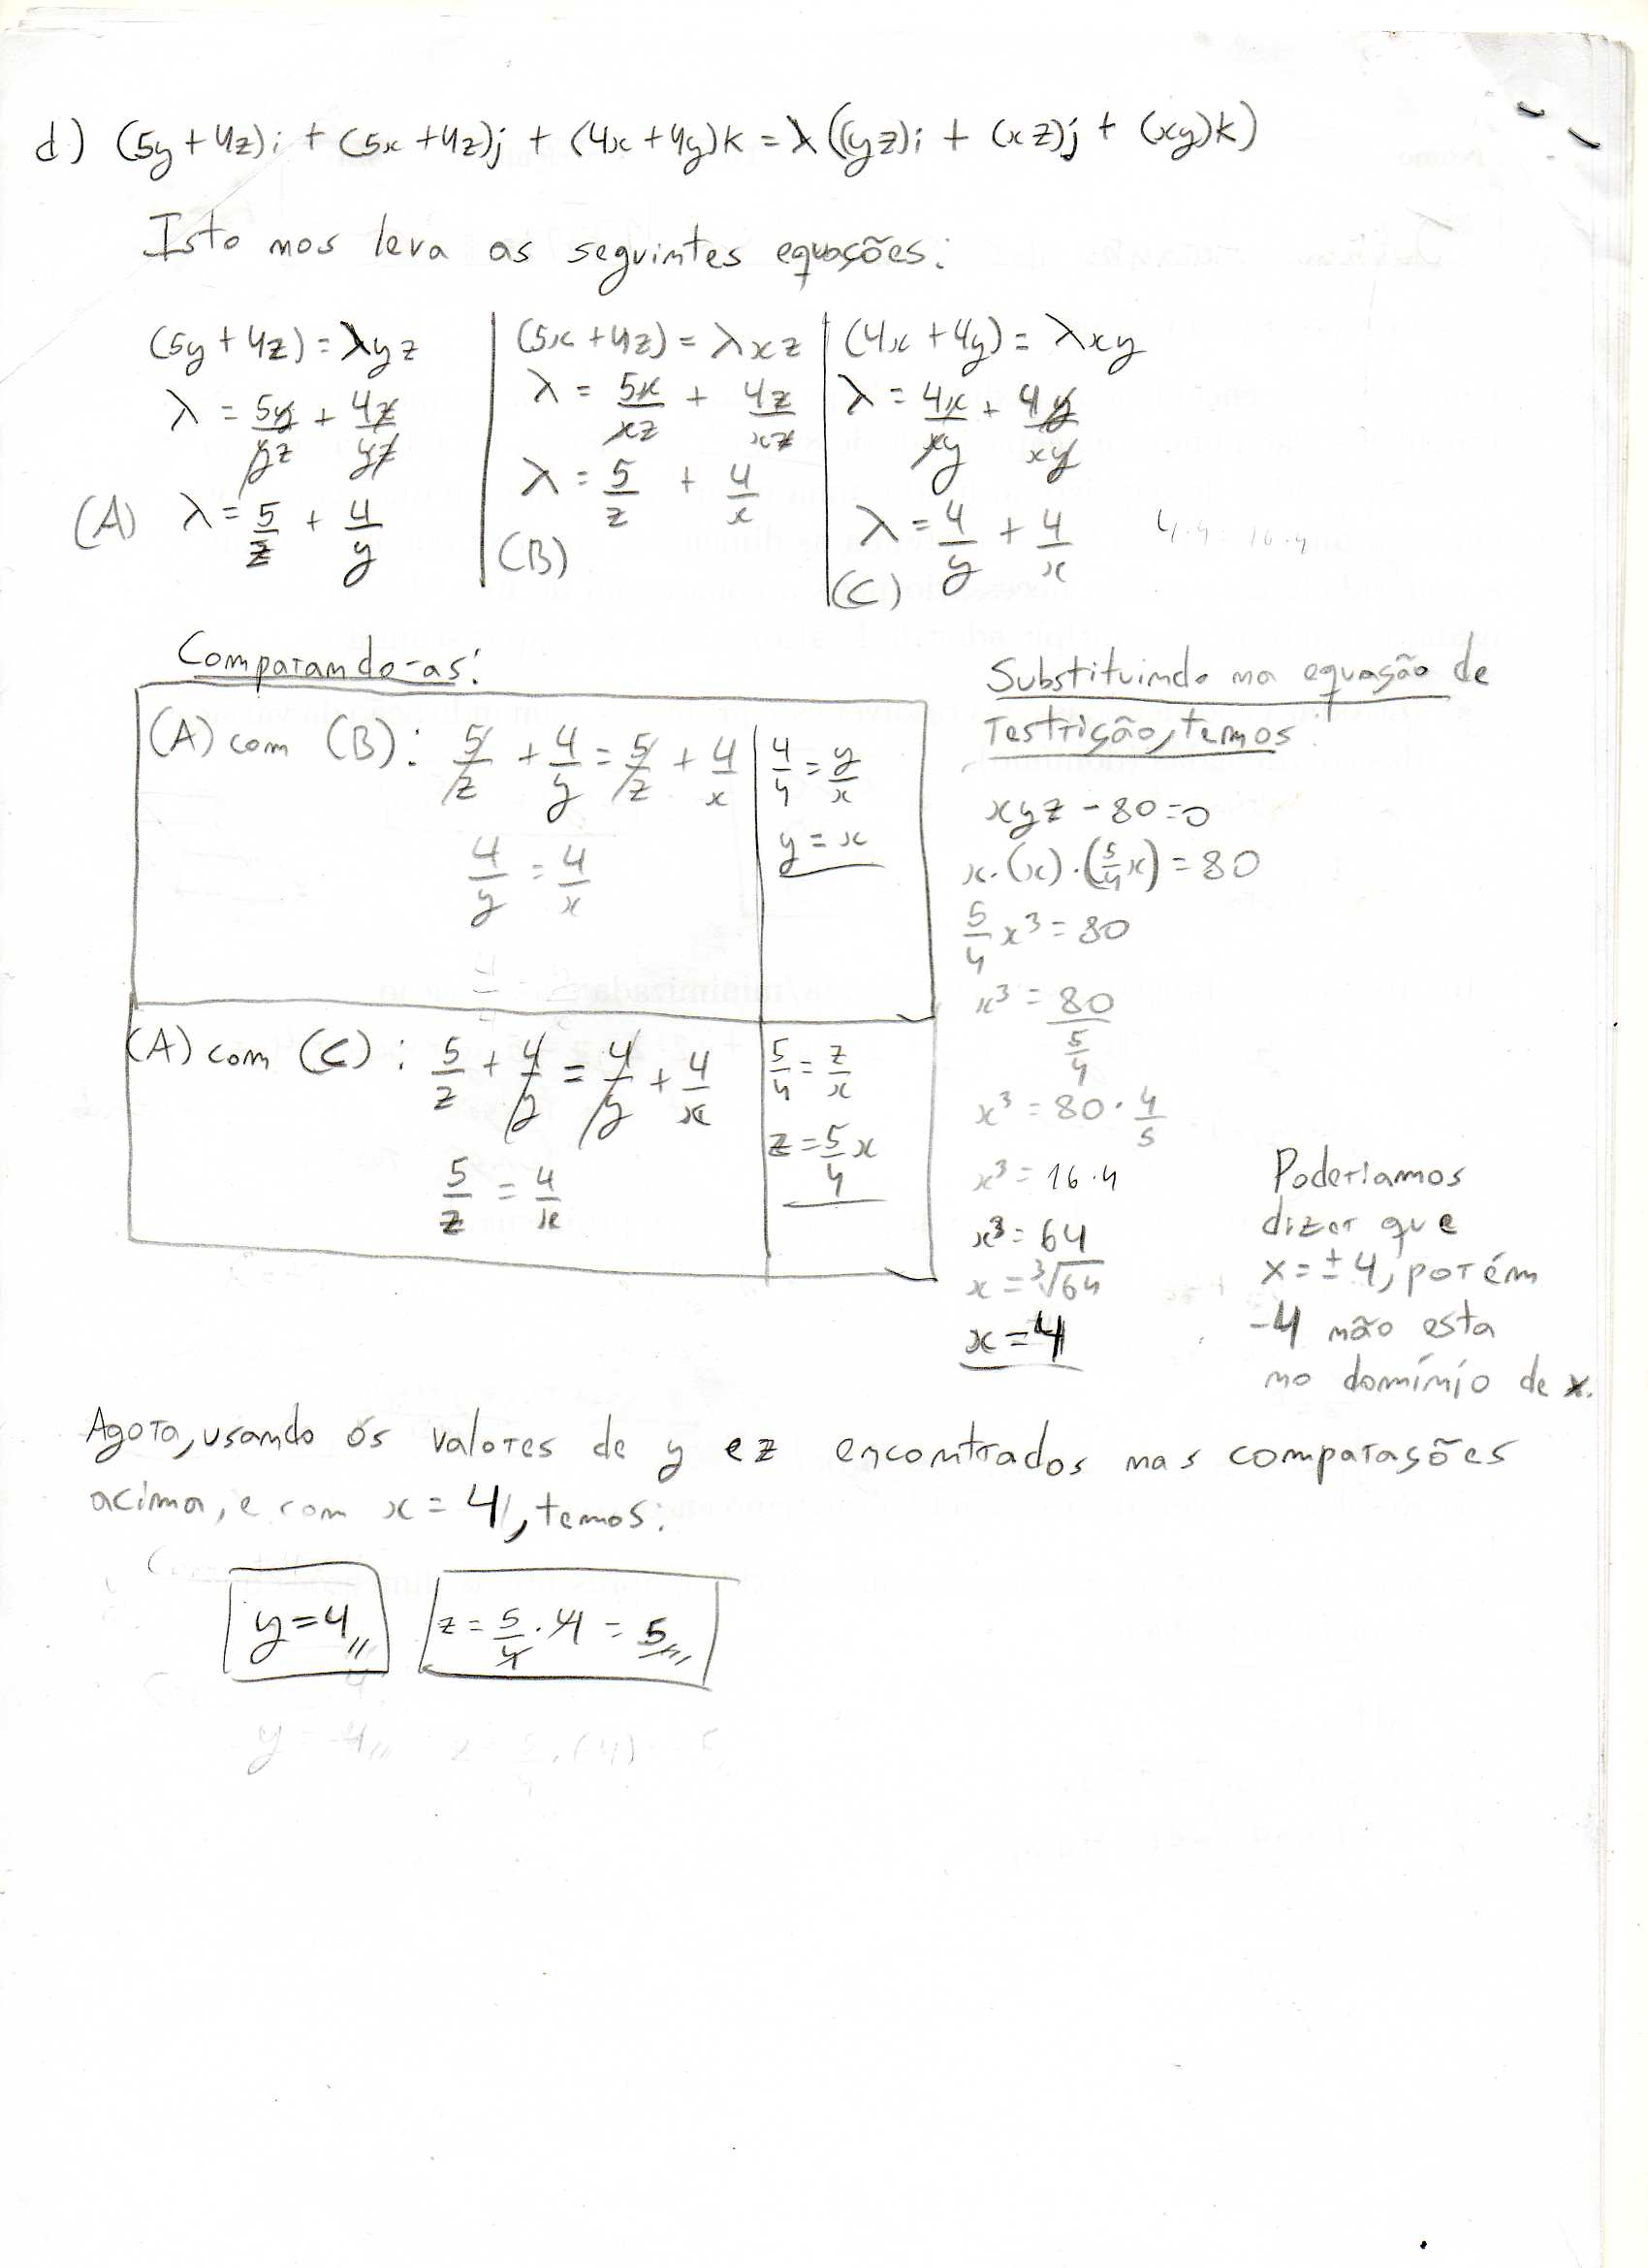 d) (5y + 4z)i + (5x + 4z)j + (4x + 4y)k = λ((yz)i + (xz)j + (xy)k)
Isto nos leva as seguintes equações:
(5y + 4z) = λyz
λ = 5y/yz + 4z/yz
(A) λ = 5/z + 4/y
(5x + 4z) = λxz
λ = 5x/xz + 4z/xz
λ = 5/z + 4/x
(B)
(4x + 4y) = λxy
λ = 4x/xy + 4y/xy
λ = 4/y + 4/x
(C)
Comparando-as:
(A) com (B): 5/z + 4/y = 5/z + 4/x
4/y = 4/x
4/4 = y/x
y = x
(A) com (C): 5/z + 4/y = 4/y + 4/x
5/z = 4/x
5/4 = z/x
z = 5/4 x
Substituindo na equação de
restrição, temos:
xyz - 80 = 0
x·(x)·(5/4 x) = 80
5/4 x³ = 80
x³ = 80/(5/4)
x³ = 80 · 4/5
x³ = 16·4
x³ = 64
x = ³√64
x = 4
Poderiamos
dizer que
x = ±4, porém
-4 não esta
no domínio de x.
Agora, usando os valores de y e z encontrados nas comparações
acima, e com x = 4, temos:
y = 4,,
z = 5/4 · 4 = 5,,